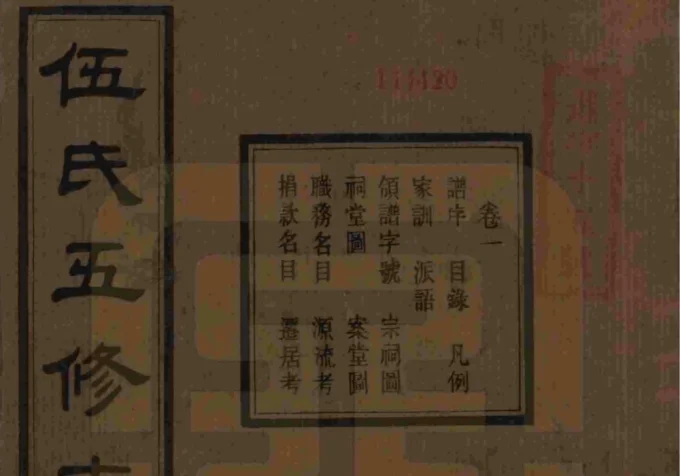 伍氏五修
111420
卷一
譜序 目錄 凡例
家訓 派語
領譜字號 宗祠圖
祠堂圖 案堂圖
職務名目 源流考
捐款名目 遷居考